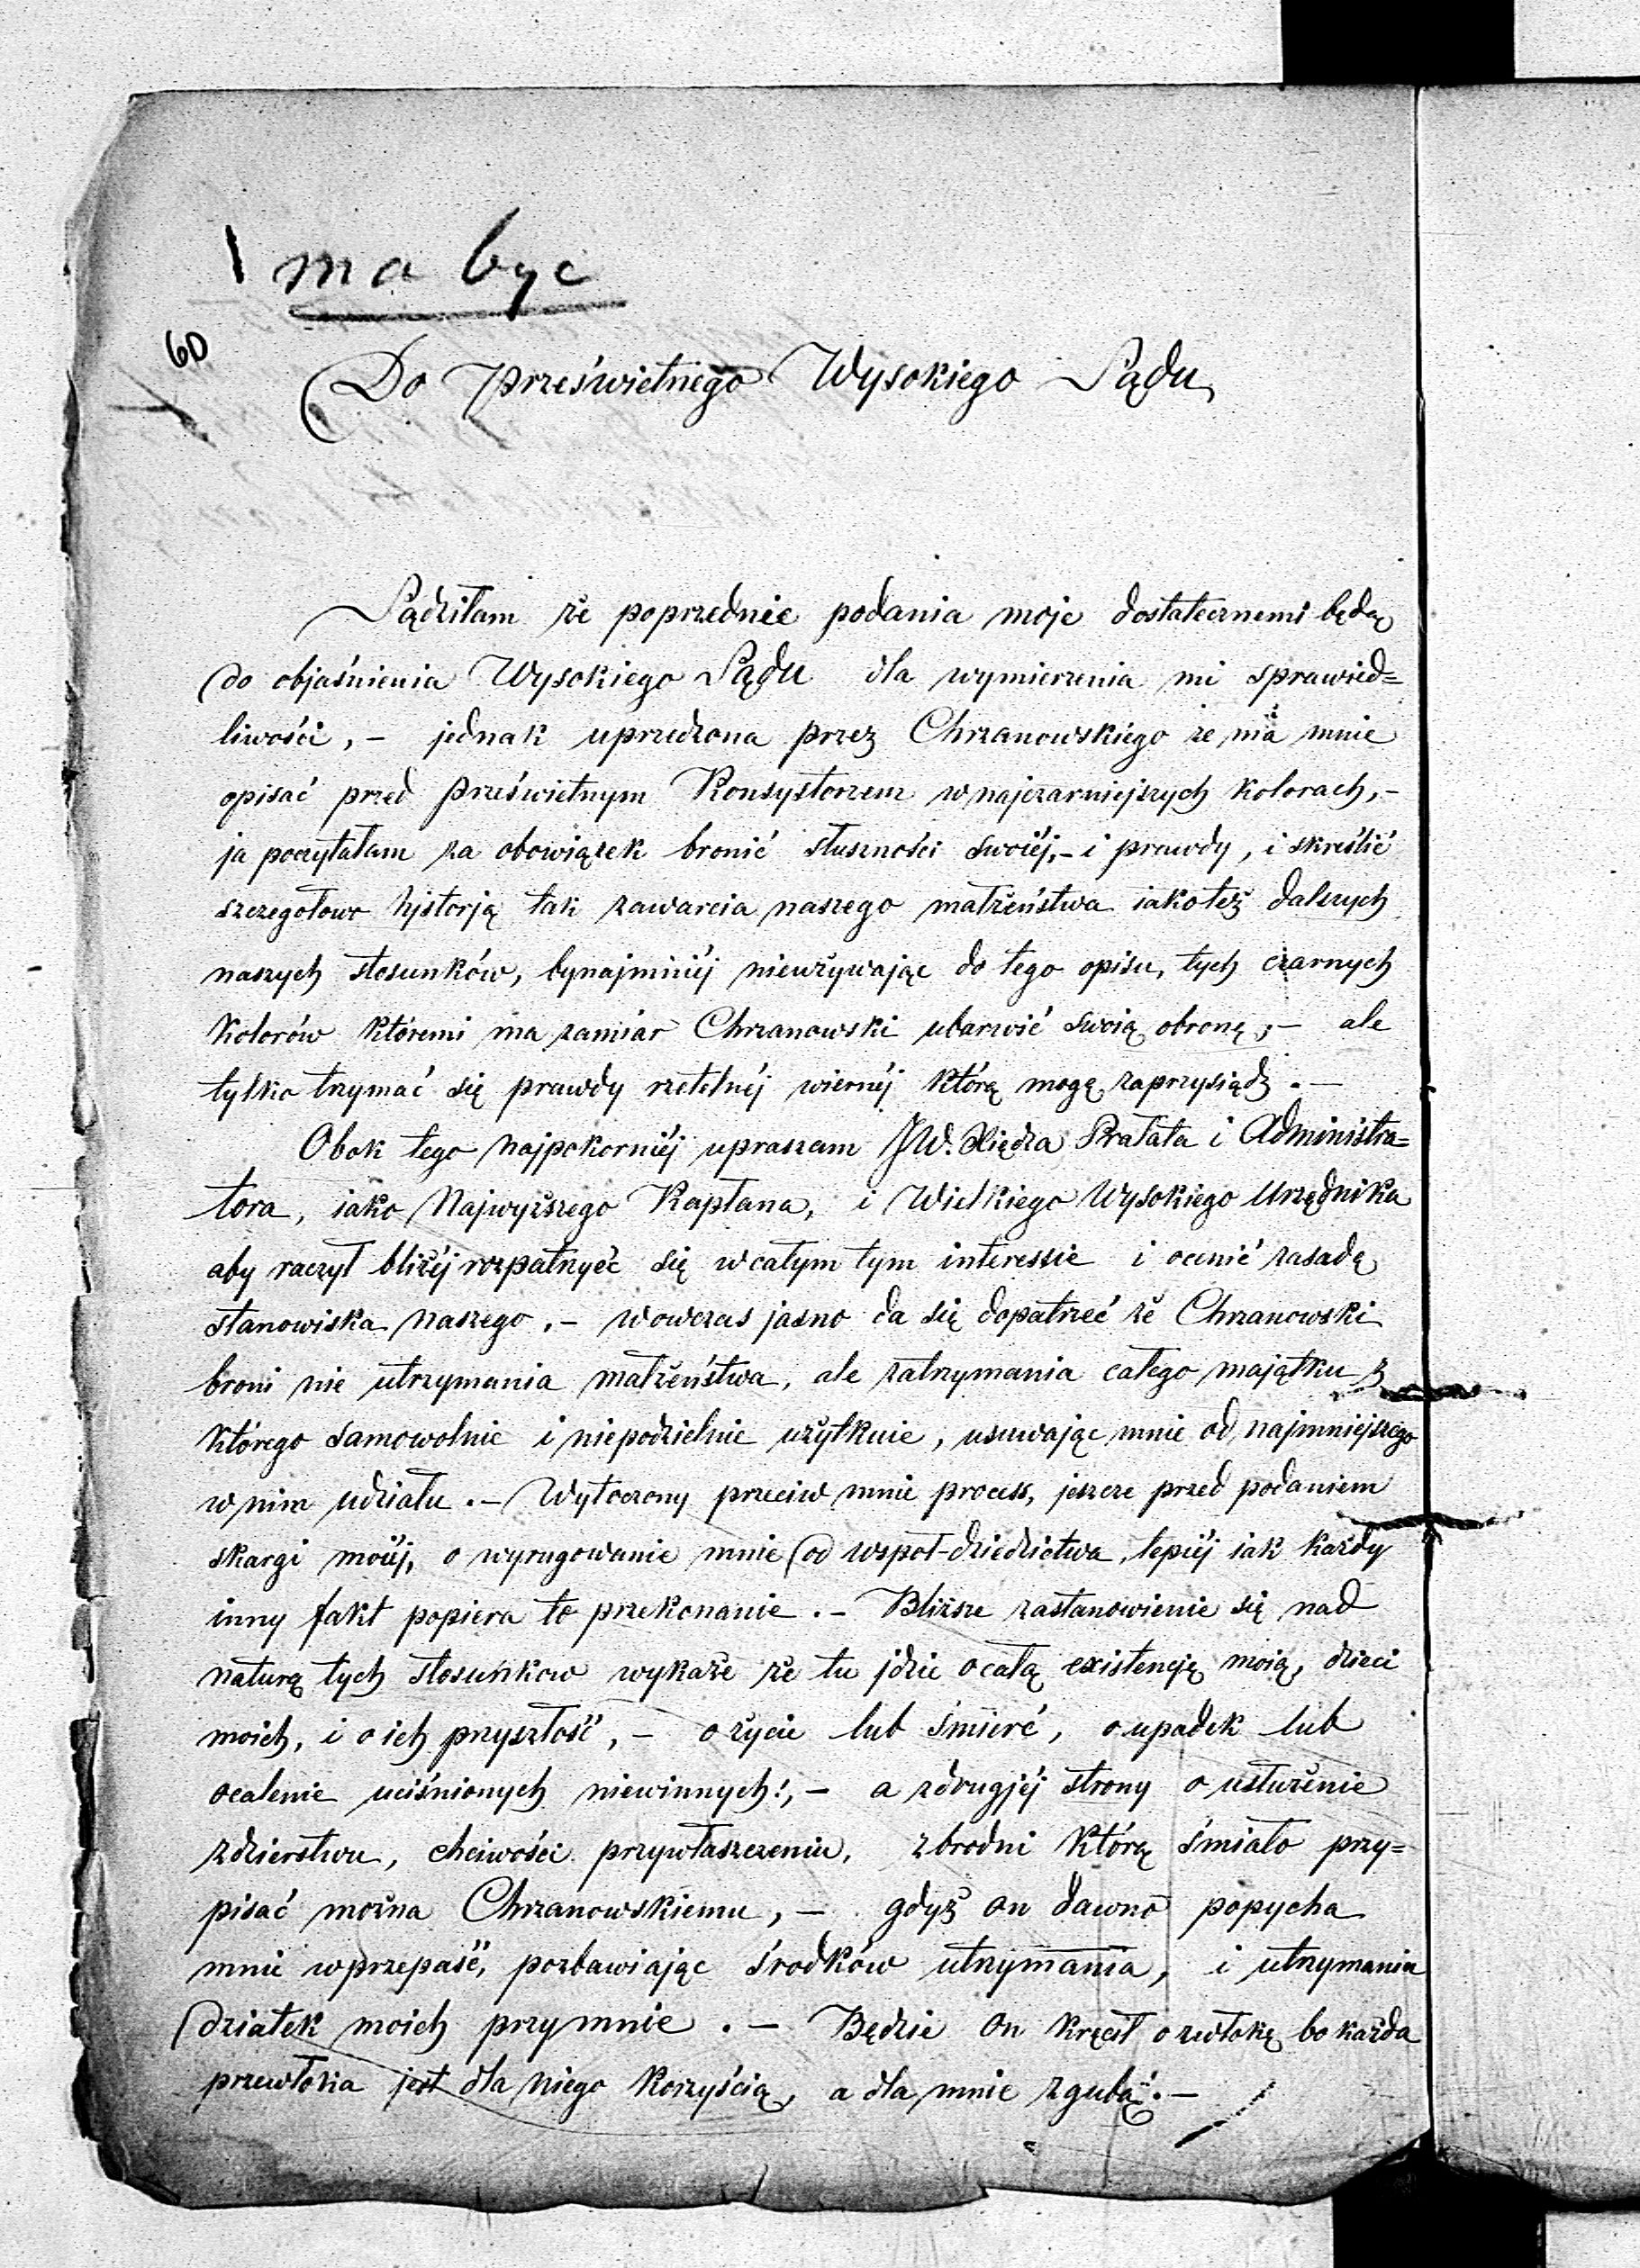 ma byc
60
Do Prześwietnego Wysokiego Sądu
Sądziłam że poprzednie podania moje dostatecznemi będą
do objaśnienia Wysokiego Sądu dla wymierzenia mi sprawied=
liwości, – jednak uprzedzona przez Chrzanowskiego że ma mnie
opisać przed prześwietnym Konsystorzem w najczarniejszych kolorach, –
ja poczytałam za obowiązek bronić słuszności swoiéj, – i prawdy, i skreślić
szczegołowo hjstorją tak zawarcia naszego małżeństwa iakoteż dalszych
naszych stosunków, bynajmniéj nieużywając do tego opisu, tych czarnych
kolorów któremi ma zamiar Chrzanowski ubarwić swoią obronę, – ale
tylko trzymać się prawdy rzetelnéj wiernéj którą mogę zaprzysiądz. –
Obok tego najpokorniéj upraszam JW. Xiędza Prałata i Administra=
tora, iako Najwyższego Kapłana, i Wielkiego Wysokiego Urzędnika
aby raczył bliżéj rozpatrzyć się w całym tym interessie i ocenić zasadę
stanowiska naszego. – wowczas jasno da się dopatrzeć że Chrzanowski
broni nie utrzymania małżeństwa, ale zatrzymania całego majątku z
którego samowolnie i niepodzielnie użytkuie, usuwając mnie od najmniejszego
w nim udziału. – Wytoczony przeciw mnie process, jeszcze przed podaniem
skargi moiéj, o wyrugowanie mnie od wspoł-dziedzictwa, lepiéj iak każdy
inny fakt popiera to przekonanie. – Bliższe zastanowienie się nad
naturą tych stosunkow wykaże że tu jdzie o całą existencję moią, dzieci
moich, i o ich przyszłość, – o życie lub śmierć, o upadek lub
ocalenie uciśnionych niewinnych!, – a zdrugjéj strony o usłużenie
zdzierstwu, chciwości przywłaszczeniu, zbrodni którę śmiało przy=
pisać można Chrzanowskiemu, – gdyż on dawno popycha
mnie wprzepaść, pozbawiając środków utrzymania, i utrzymania
dziatek moich przymnie. – Będzie on kręcił o zwłokę bo każda
przewłoka jest dla niego korzyścią, a dla mnie zgubą. –